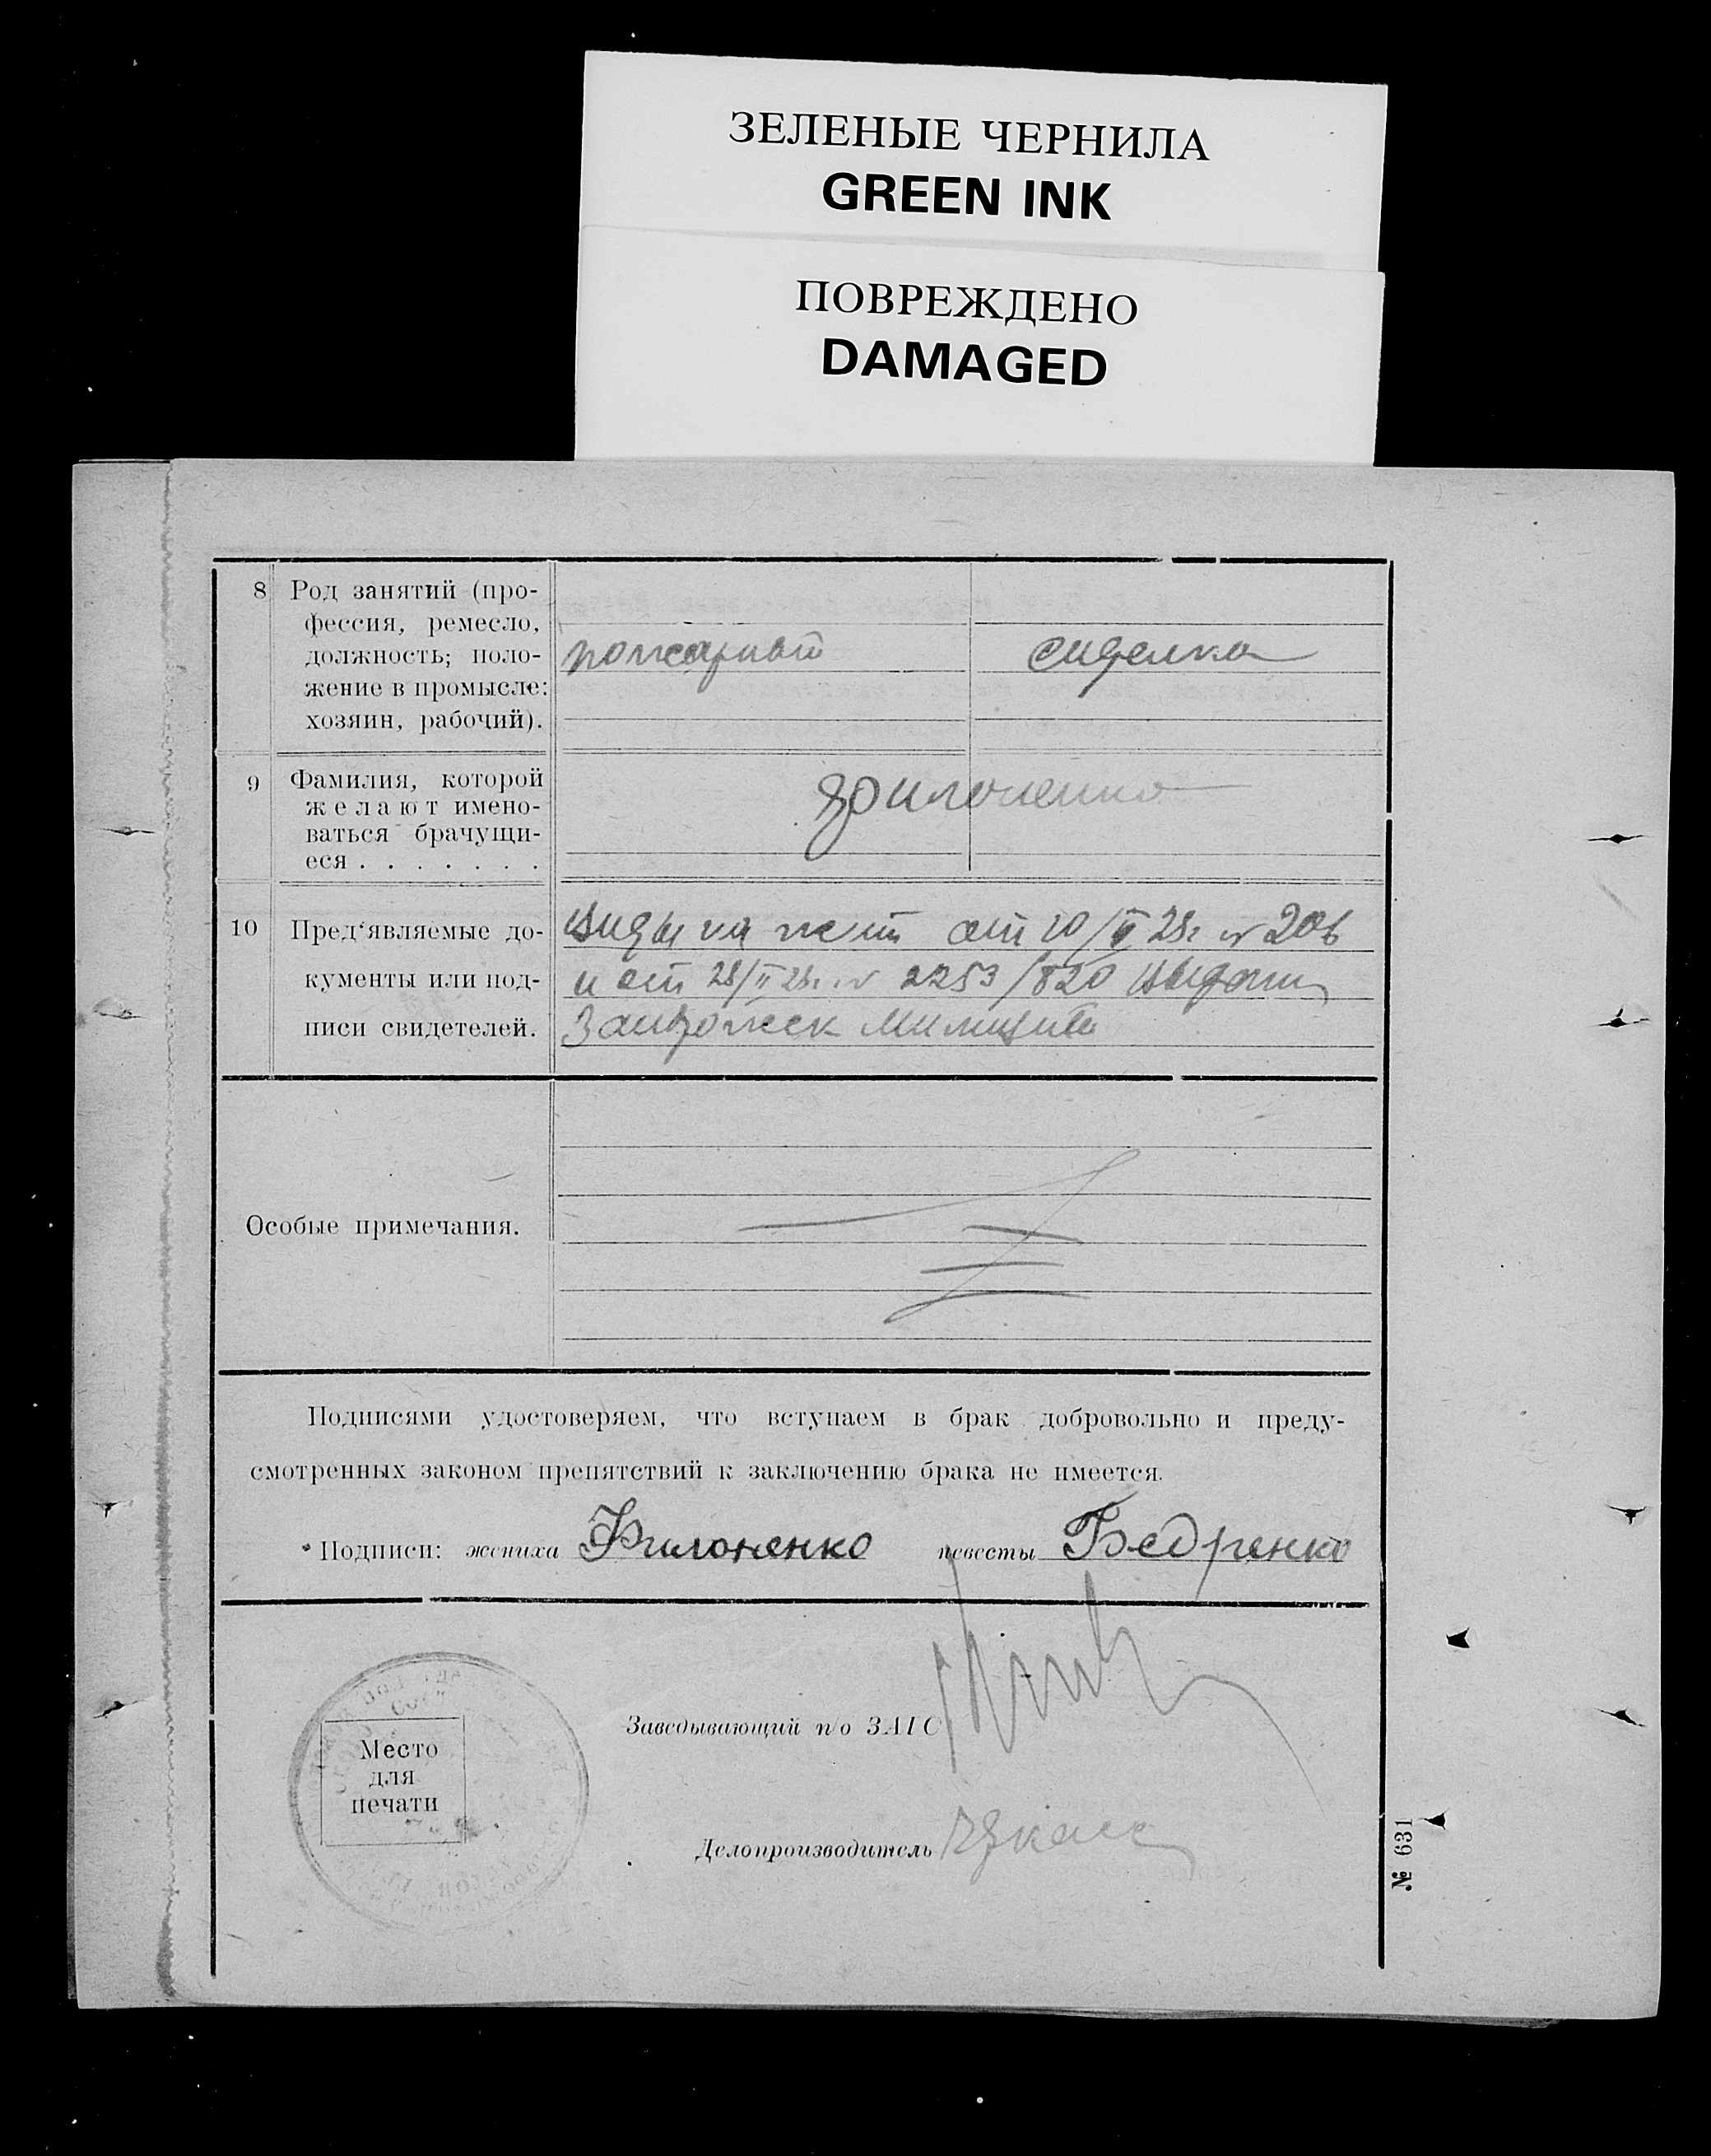 ЗЕЛЕНЫЕ ЧЕРНИЛА
GREEN INK
ПОВРЕЖДЕНО
DAMAGED
8 Род занятий (про-
фессия, ремесло,
должность; поло-
жение в промысле:
хозяин, рабочий).
пожарный
сиделка
9 Фамилия, которой
желают имено-
ваться брачущи-
еся . . . . . . .
Филоненко
10 Пред‘являемые до-
кументы или под-
писи свидетелей.
Виды на жит от 10/II 28г № 206
и от 28/II 28г. № 2253/820 выдан
Запорожск Милицией
Особые примечания.
Подписями удостоверяем, что вступаем в брак добровольно и преду-
смотренных законом препятствий к заключению брака не имеется.
Подписи: жениха Филоненко невесты Бедренко
Заведывающий п/о ЗАГС
Место
для
печати
Делопроизводитель
№ 631